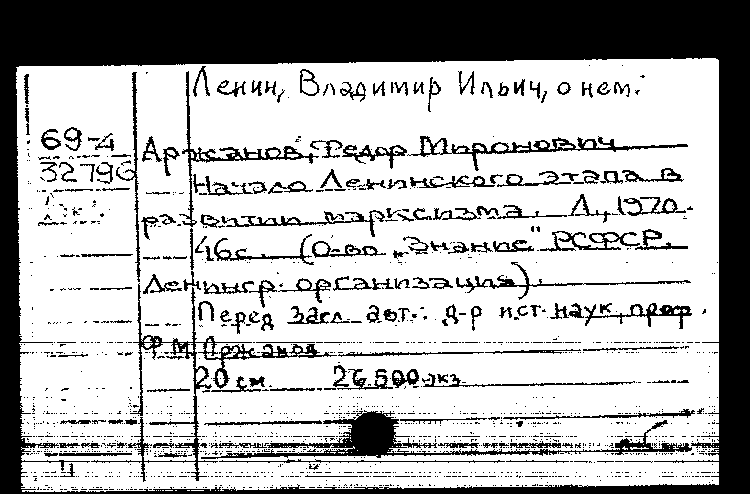 Ленин, Владимир Ильич, о нем.
69-4
32796
Аржанов, Федор Миронович
Начало Ленинского этапа в
развитии марксизма. Л., 1970.
46с. (О-во „Знание" РСФСР.
Ленингр. организация).
Перед загл. авт.: д-р ист. наук, проф.
Ф.М. Аржанов.
20 см. 26.500 экз.